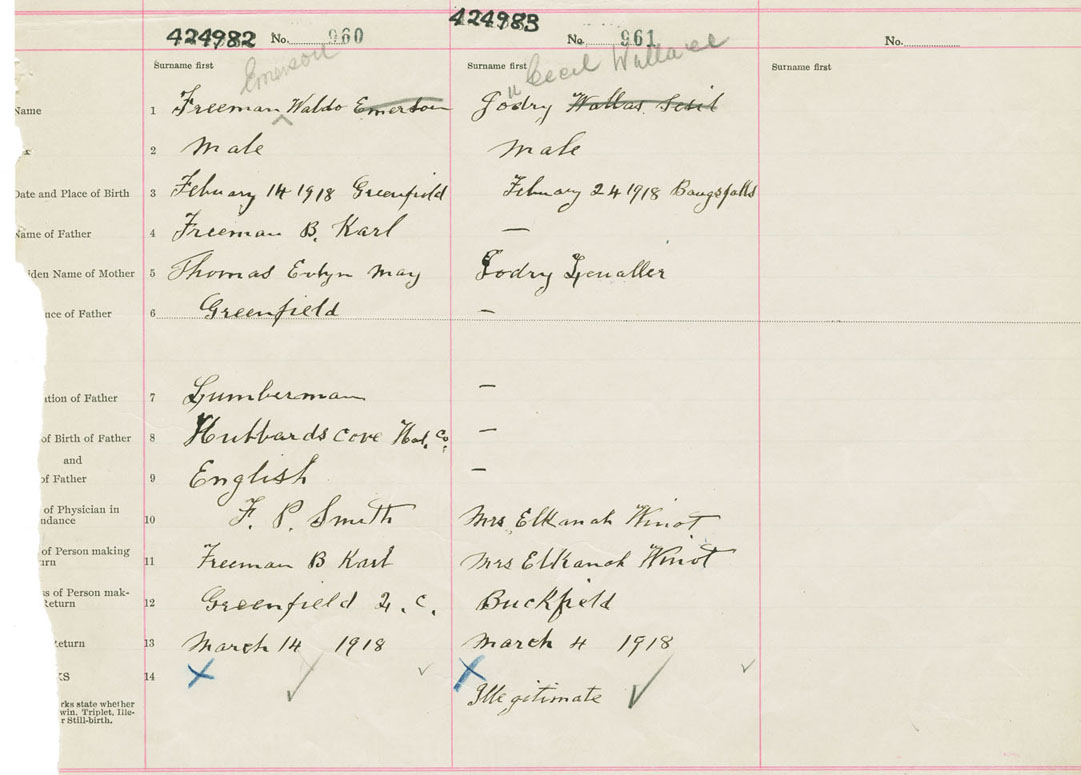 424982 No. 960 424983 No. 961 No.
Surname first Emerson Surname first Cecil Wallace Surname first
Name 1 Freeman Waldo Emerson Godry Wallas Sesil
2 Male Male
Date and Place of Birth 3 Febuary 14 1918 Greenfield Febuary 24 1918 Bangsfalls
Name of Father 4 Freeman B. Karl —
iden Name of Mother 5 Thomas Evlyn May Godry
nce of Father 6 Greenfield –
ation of Father 7 Lumberman –
of Birth of Father 8 Hubbards Cove Hal. Co. –
and
of Father 9 English –
of Physician in
ndance 10 F. P. Smith Mrs Elkanah Winot
of Person making
urn 11 Freeman B Karl Mrs Elkanah Winot
ss of Person mak-
Return 12 Greenfield Q. C. Buckfield
Return 13 March 14 1918 March 4 1918
KS 14 Illegitimate
rks state whether
win, Triplet, Ille-
r Still-birth.